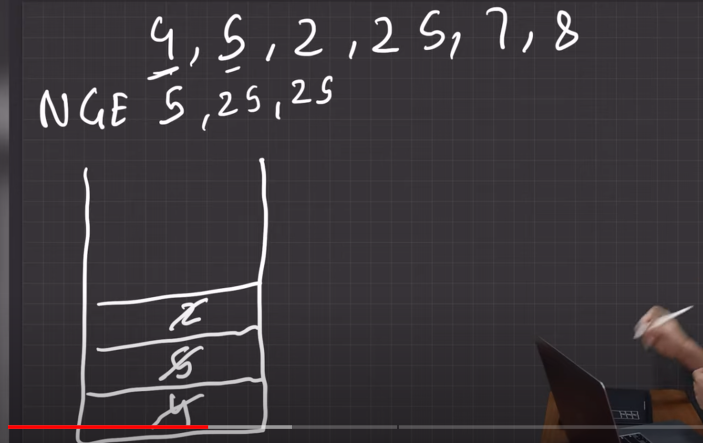 4, 5, 2, 25, 7, 8
NGE 5, 25, 25
2
5
4